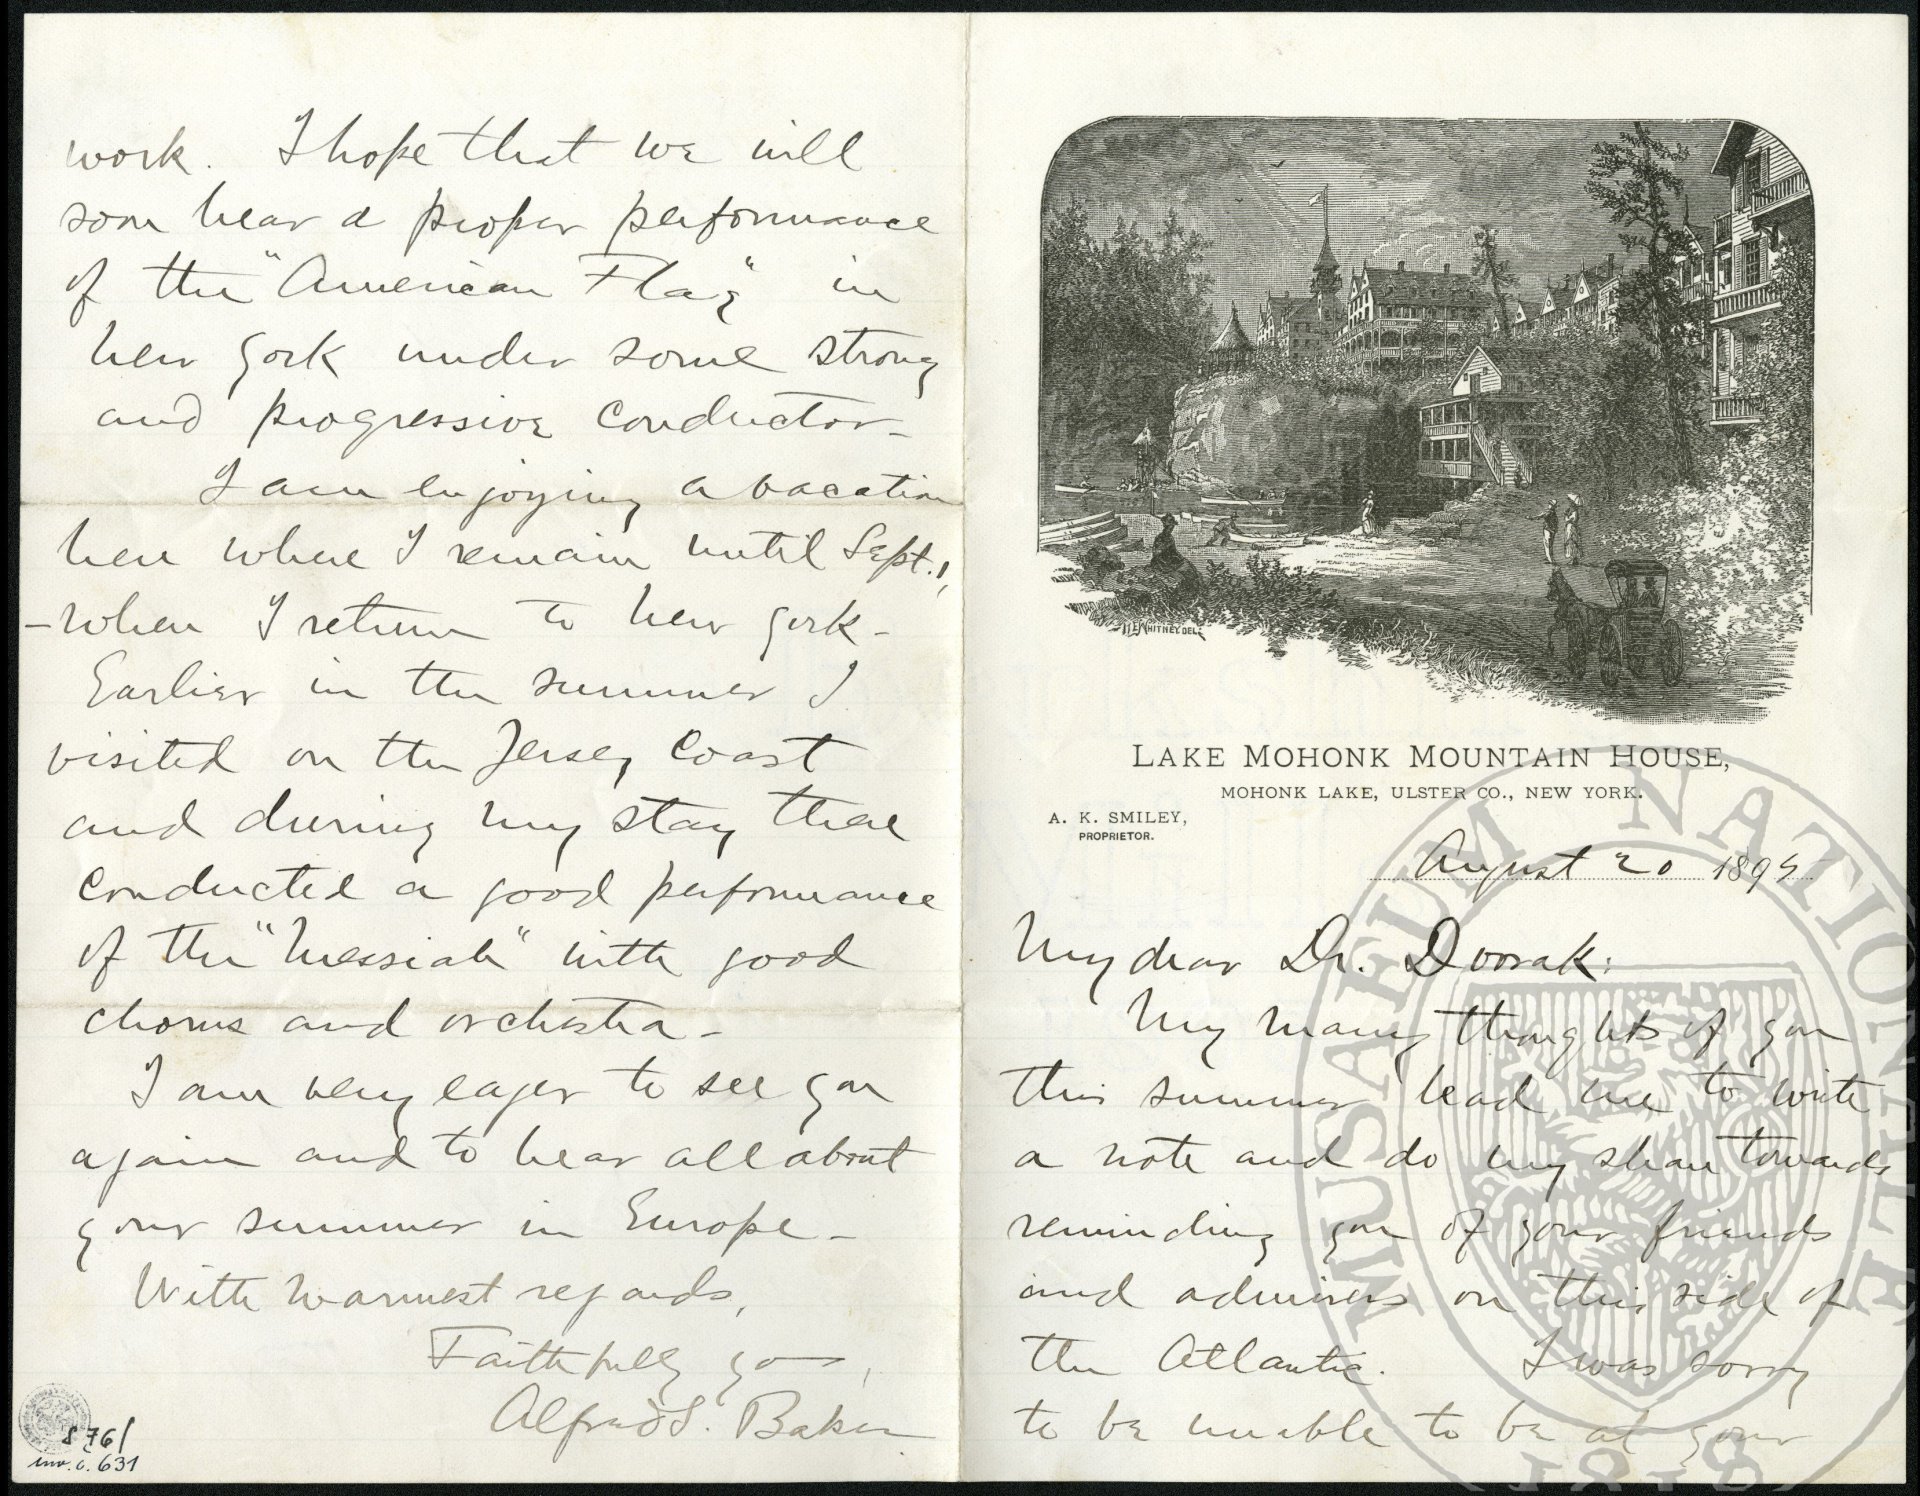 LAKE MOHONK MOUNTAIN HOUSE,
MOHONK LAKE, ULSTER CO., NEW YORK.
A. K. SMILEY,
PROPRIETOR.
August 20 1895
My dear Dr. Dvorak:
My many thoughts of you
this summer lead me to write
a note and do my share towards
reminding you of your friends
and admirers on this side of
the Atlantic. I was sorry
to be unable to be at your
work. I hope that we will
soon hear a proper performance
of the "American Flag" in
New York under some strong
and progressive conductor-
I am enjoying a vacation
here where I remain until Sept. 1,
- when I return to New York-
Earlier in the summer I
visited on the Jersey Coast
and during my stay there
conducted a good performance
of the "Messiah" with good
chorus and orchestra-
I am very eager to see you
again and to hear all about
your summer in Europe-
With warmest regards,
Faithfully yours,
Alfred S. Baker
S 76/
inv. č. 631
WHITNEY DEL.
MUSAEUM NATIONALE
1818